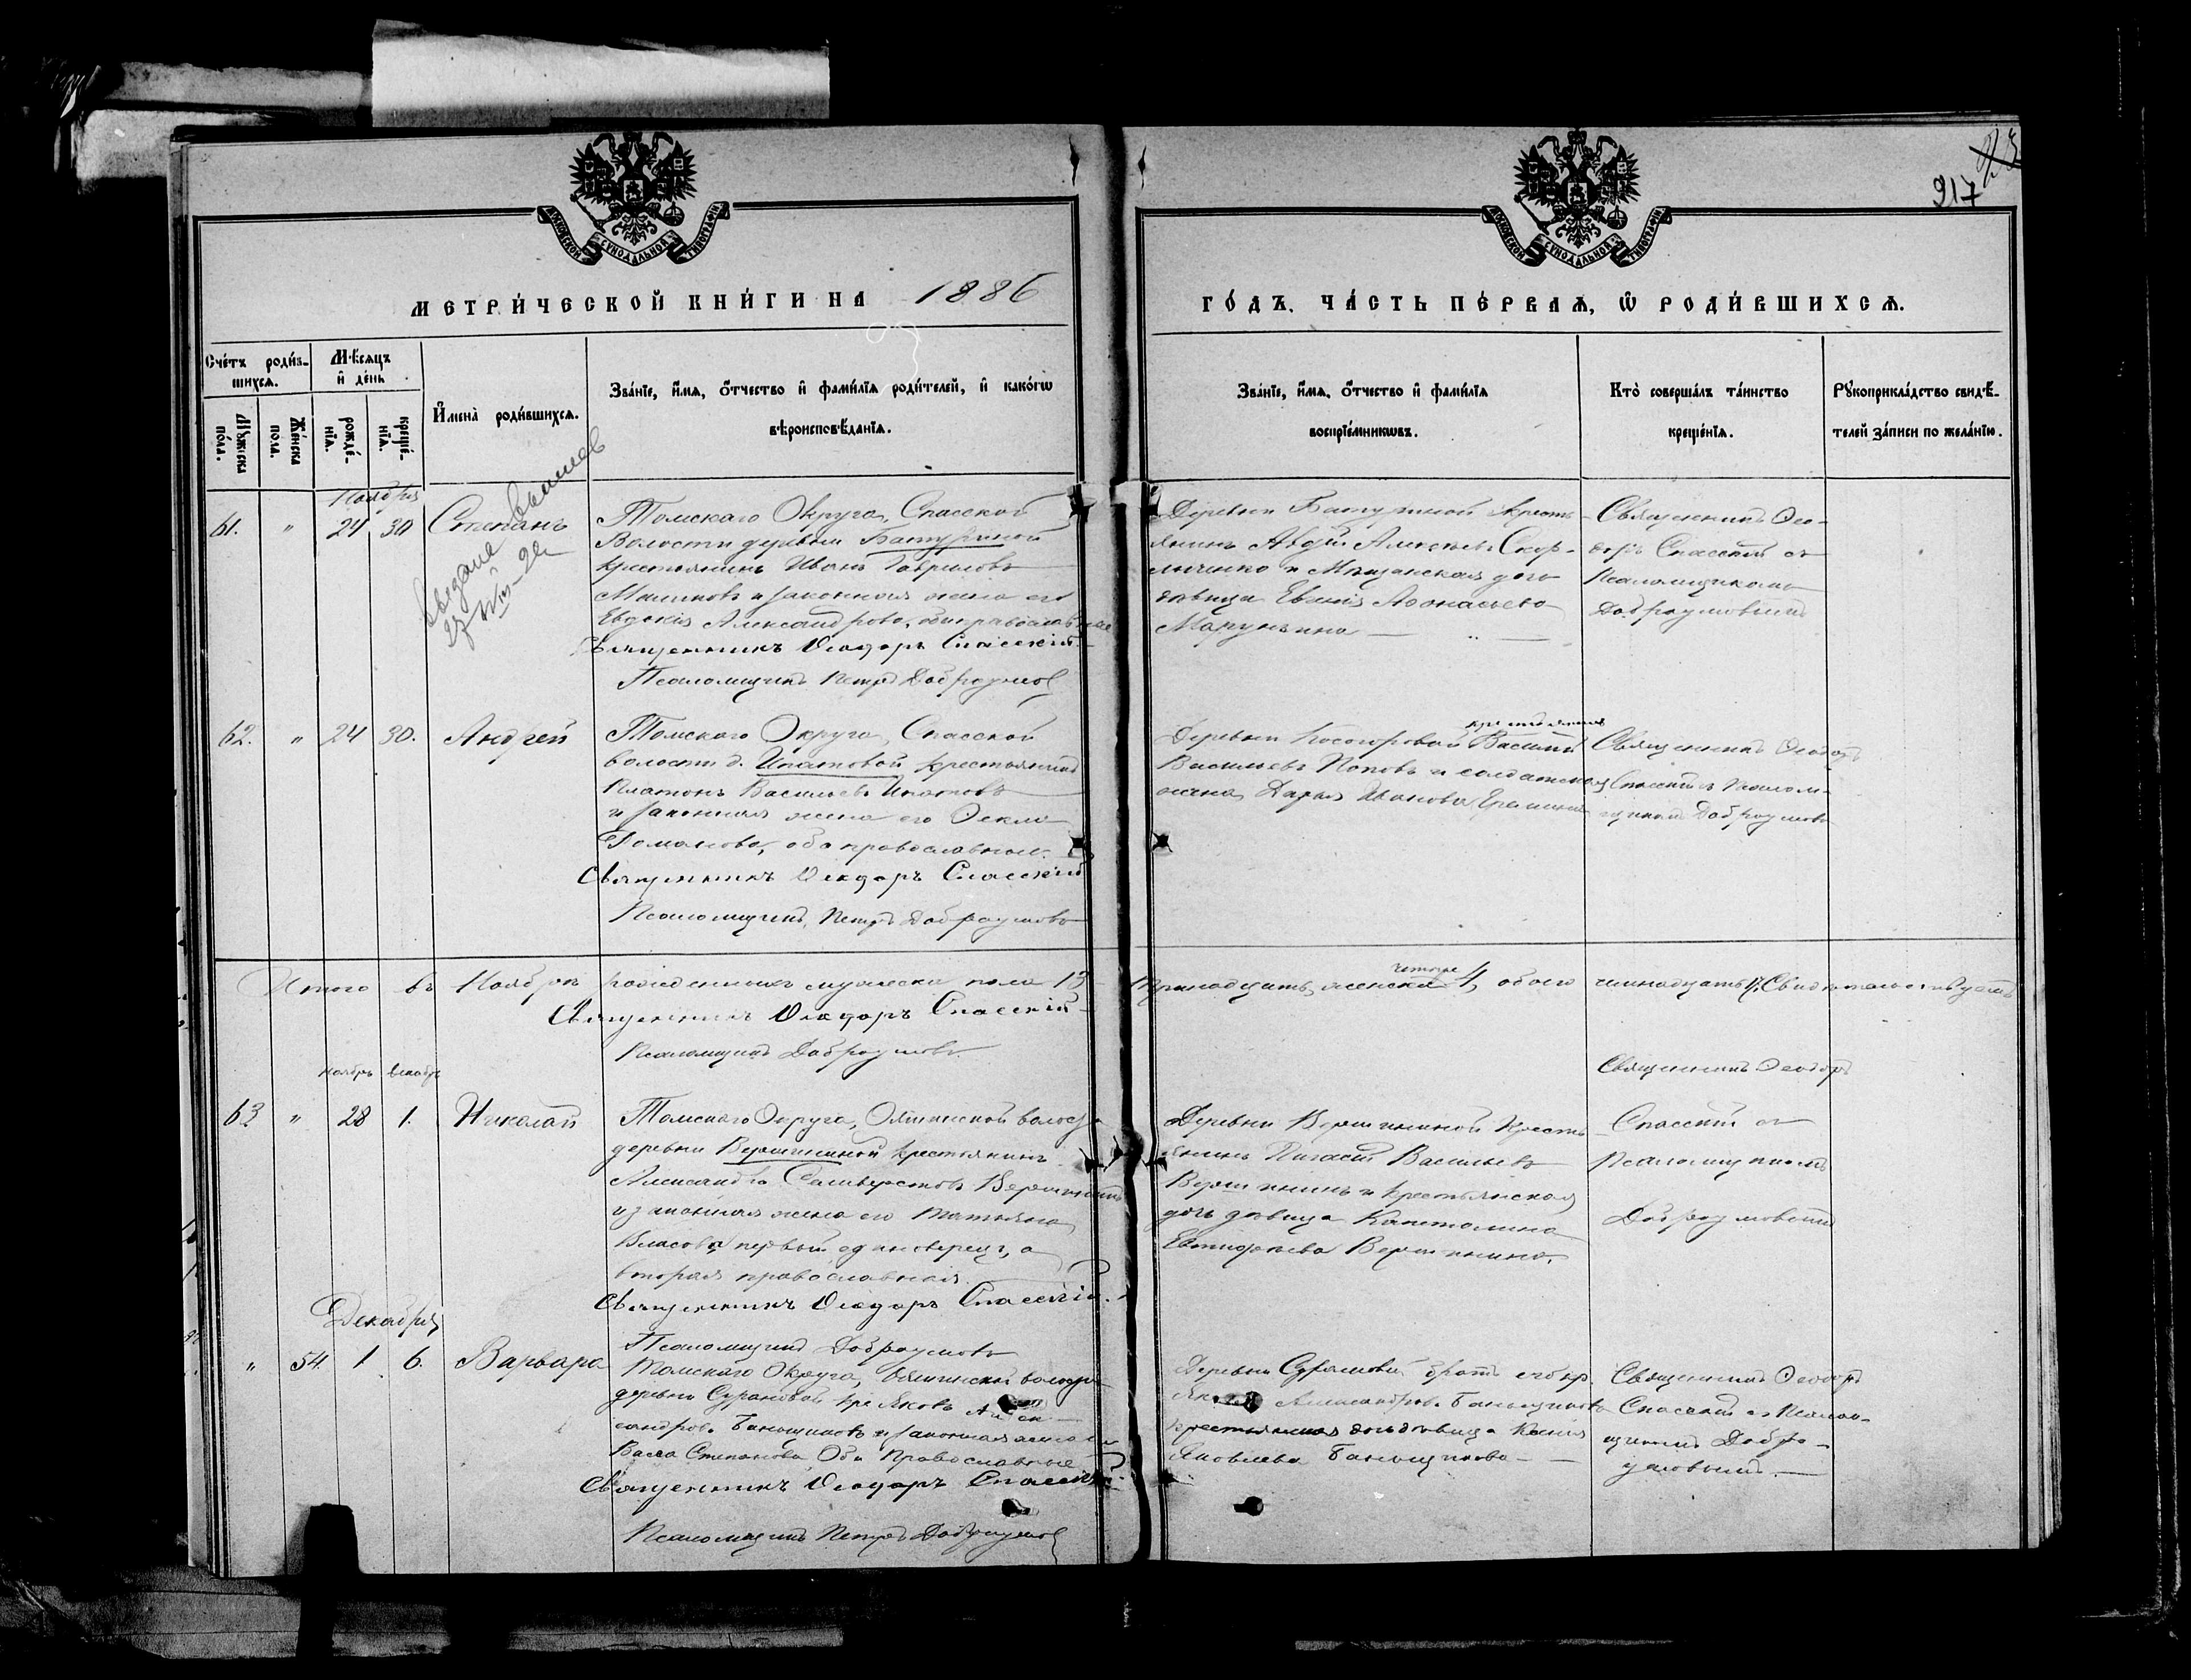 217
МОСКОВСКОЙ СѴНОДАЛЬНОЙ ТИПОГРАФІИ
МОСКОВСКОЙ СѴНОДАЛЬНОЙ ТИПОГРАФІИ
МЕТРИ́ЧЕСКОЙ КНИ́ГИ НА 1886
ГО́ДЪ. ЧА́СТЬ ПЕ́РВАѦ, Ѡ РОДИ́ВШИХСѦ.
Сче́тъ роди́в-
шихсѧ.
Мѣсѧцъ
и де́нь
Мꙋжеска
по́ла.
Же́нска
по́ла.
рожде́-
нїѧ.
креще́-
нїѧ.
И҆мена̀ роди́вшихсѧ.
Зва́нїе, и҆́мѧ, ѻ҆́тчество и҆ фами́лїѧ роди́телей, и҆ како́гѡ
вѣроисповѣ́данїѧ.
Зва́нїе, и҆́мѧ, ѻ҆́тчество и҆ фами́лїѧ
воспрїе́мникѡвъ.
Кто̀ соверша́лъ та́инство
креще́нїѧ.
Рꙋкоприкла́дство свидѣ́-
телей за́писи по жела́нїю.
Ноября
61. " 24 30 Степанъ
Томскаго Округа, Спасской
Волости деревни Батуриной
крестьянинъ Иванъ Гавриловъ
и законная жена его
Евдокія Александрова, оба православные
Священникъ Ѳеодоръ Спасскій
Псаломщикъ Петръ Доброумов
Деревни Батуриной кресть-
янинъ Авдѣй Алексѣевъ
и Мѣщанская дочь
дѣвица Евгенія Аѳонасьева
Священникъ Ѳео-
доръ Спасскій съ
Псаломщикомъ
Доброумовымъ
62. " 24 30. Андрей
Томскаго Округа, Спасской
волости д. Ипатовой крестьянинъ
Платонъ Васильевъ Ипатовъ
и законная жена его Ѳекла
Романова, оба православные.
Священникъ Ѳеодоръ Спасскій
Псаломщикъ, Петръ Доброумовъ
крестьянинъ
Деревни Косогоровой Василій
Васильевъ Поповъ и солдатская
жена Дарья Иванова
Священникъ Ѳеодоръ
Спасскій съ Псалом-
щикомъ Доброумовъ
Итого въ Ноябрѣ рожденныхъ мужеска пола 13
тринадцать, женска четыре 4, обоего семнадцать 17. Свидѣтельствуетъ
Священникъ Ѳеодоръ Спасскій
Псаломщикъ Доброумовъ.
ноябрь декабрь
63 " 28 1. Николай
Томскаго Округа, Ояшинской волости
деревни Вершининой крестьянинъ
Александръ Селиверстовъ Вершининъ
и законная жена его Татьяна
Власова, первый единоверецъ, а
вторая православная.
Священникъ Ѳеодоръ Спасскій.
Псаломщикъ Доброумовъ
Деревни Вершининой Кресть-
янинъ Васильевъ
Вершининъ и крестьянская
дочь дѣвица Капитолина
Вершинина.
Священникъ Ѳеодоръ
Спасскій съ
Псаломщикомъ
Доброумовымъ
Декабрь
" 54 1 6. Варвара
Томскаго Округа, волости
деревни Сурановой кре Яковъ Алек-
сандровъ Баньщиковъ и законная жена его
Васса Степанова, Оба Православные
Священникъ Ѳеодоръ Спасскій.
Псаломщикъ Петръ Доброумов
Деревни Сурановой братъ его кр.
Александровъ Баньщиковъ
крестьянская дочь дѣвица
Яковлева Баньщикова
Священникъ Ѳеодоръ
Спасскій съ Псалом-
щикомъ Добро-
умовымъ.